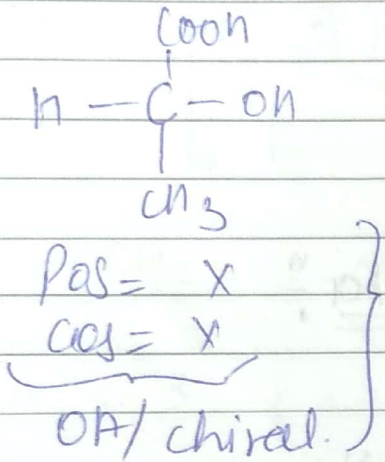 COOH
H — C — OH
CH3
POS = X
COS = X
OA/ chiral.